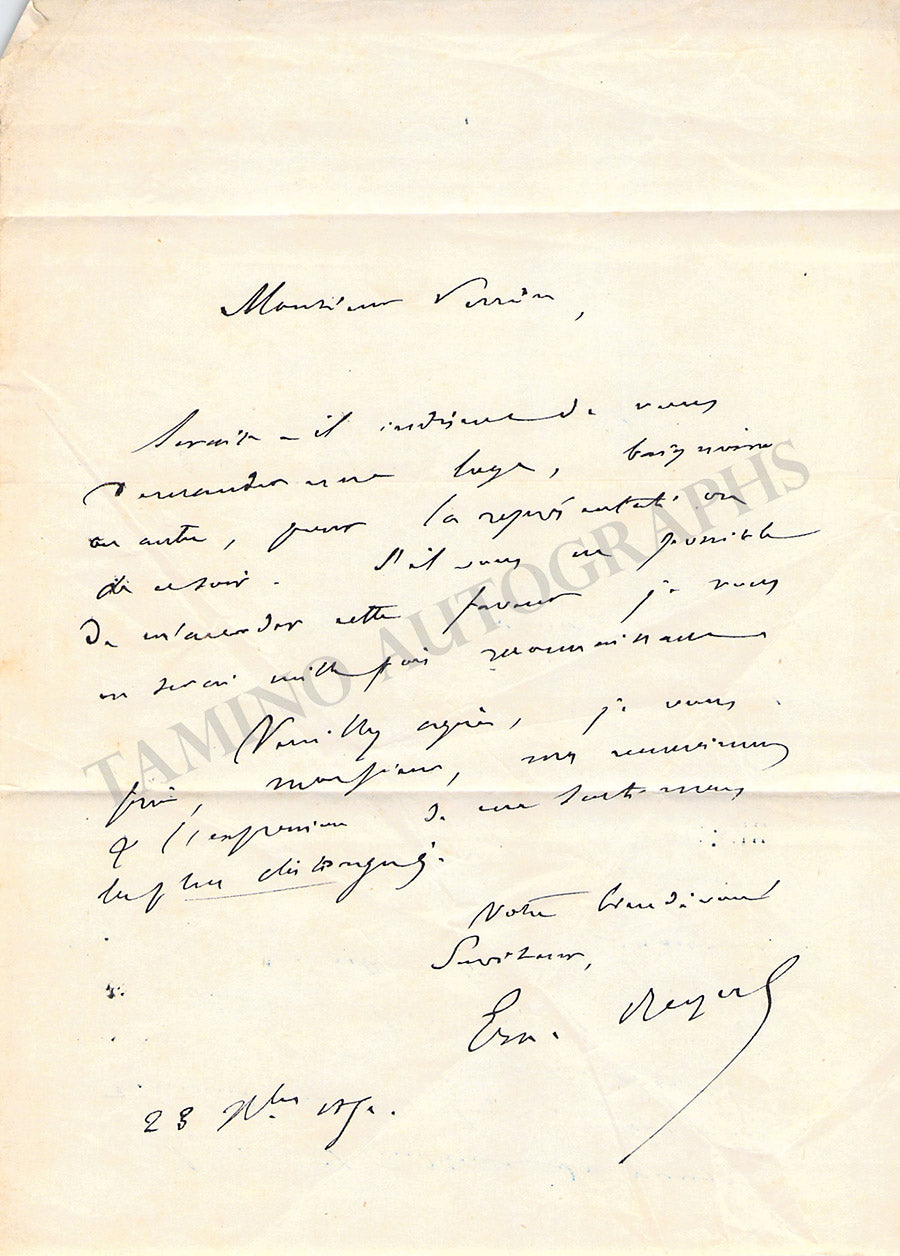 Monsieur Perrin,
Serait-il indiscret de vous
demander une loge, baignoire
ou autre, pour la représentation
de ce soir. S'il vous est possible
de m'accorder cette faveur je vous
en serai mille fois reconnaissant
Veuillez agréer, je vous
prie, monsieur, mes remerciements
& l'expression de mes sentiments
les plus distingués.
Votre bien dévoué
Serviteur,
Ern. Reyer
23
TAMINO AUTOGRAPHS